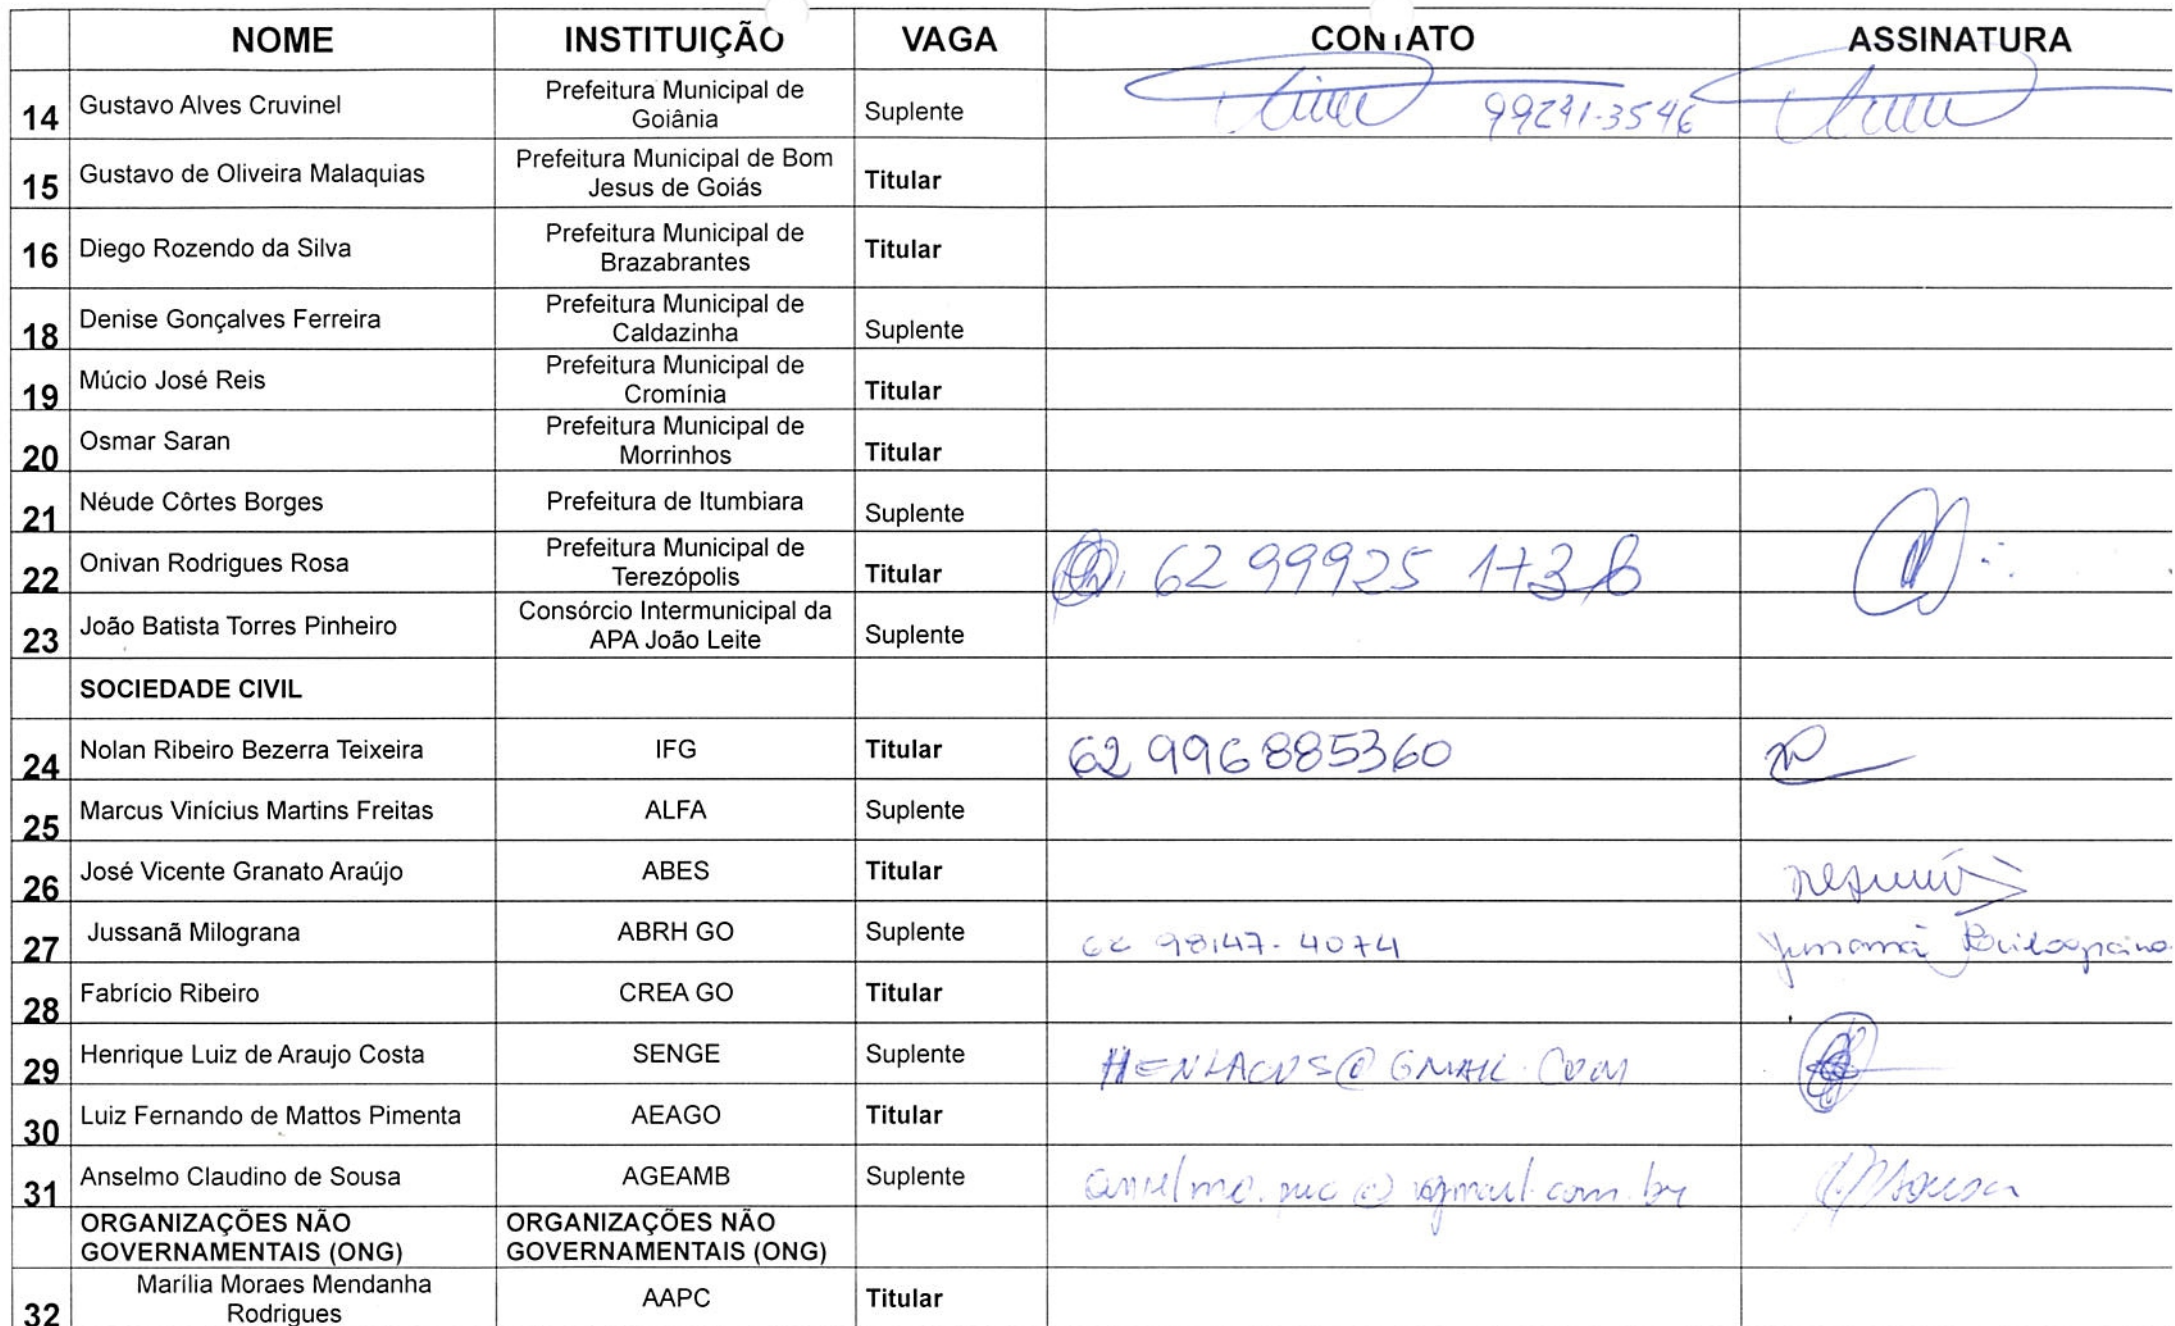 NOME INSTITUIÇÃO VAGA CONTATO ASSINATURA
14 Gustavo Alves Cruvinel Prefeitura Municipal de Goiânia Suplente 99241-3546
15 Gustavo de Oliveira Malaquias Prefeitura Municipal de Bom Jesus de Goiás Titular
16 Diego Rozendo da Silva Prefeitura Municipal de Brazabrantes Titular
18 Denise Gonçalves Ferreira Prefeitura Municipal de Caldazinha Suplente
19 Múcio José Reis Prefeitura Municipal de Cromínia Titular
20 Osmar Saran Prefeitura Municipal de Morrinhos Titular
21 Néude Côrtes Borges Prefeitura de Itumbiara Suplente
22 Onivan Rodrigues Rosa Prefeitura Municipal de Terezópolis Titular 62 99925
23 João Batista Torres Pinheiro Consórcio Intermunicipal da APA João Leite Suplente
SOCIEDADE CIVIL
24 Nolan Ribeiro Bezerra Teixeira IFG Titular 62 996885360
25 Marcus Vinícius Martins Freitas ALFA Suplente
26 José Vicente Granato Araújo ABES Titular
27 Jussanã Milograna ABRH GO Suplente 62 98147-4074 Jussanã Milograna
28 Fabrício Ribeiro CREA GO Titular
29 Henrique Luiz de Araujo Costa SENGE Suplente HENLACOS@GMAIL.COM
30 Luiz Fernando de Mattos Pimenta AEAGO Titular
31 Anselmo Claudino de Sousa AGEAMB Suplente
ORGANIZAÇÕES NÃO GOVERNAMENTAIS (ONG) ORGANIZAÇÕES NÃO GOVERNAMENTAIS (ONG)
32 Marília Moraes Mendanha Rodrigues AAPC Titular